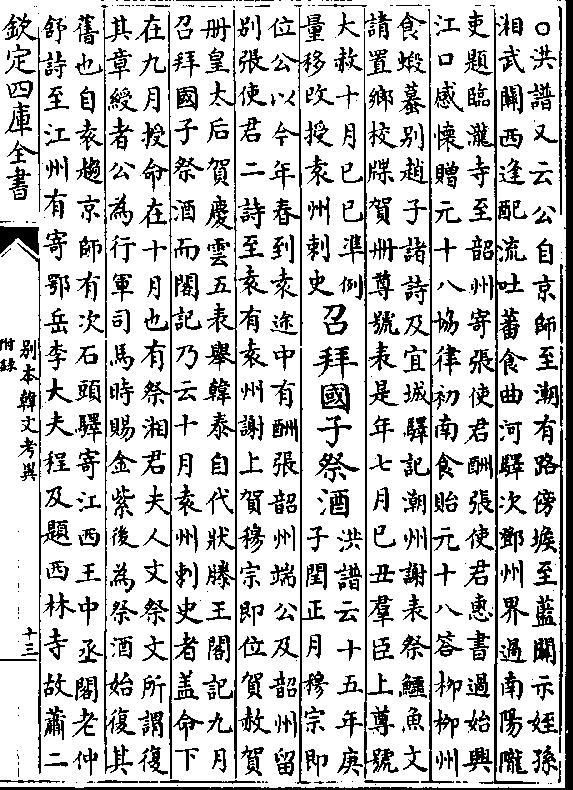 ○洪譜又云公自京師至潮有路傍堠至藍關示姪孫
湘武關西逢配流吐蕃食曲河驛次鄧州界過南陽隴
吏題臨瀧寺至韶州寄張使君酬張使君惠書過始興
江口感懷贈元十八協律初南食貽元十八答柳柳州
食蝦蟇別趙子諸詩及宜城驛記潮州謝表祭鱷魚文
請置鄉校牒賀册尊號表是年七月已丑羣臣上尊號
大赦十月已巳準例
量移改授袁州刺史
召拜國子祭酒
洪譜云十五年庚
子閏正月穆宗即
位公以今年春到袁途中有酬張韶州端公及韶州留
別張使君二詩至袁有袁州謝上賀穆宗即位賀赦賀
册皇太后賀慶雲五表舉韓泰自代狀滕王閣記九月
召拜國子祭酒而閣記乃云十月袁州刺史者盖命下
在九月授命在十月也有祭湘君夫人文祭文所謂復
其章綬者公為行軍司馬時賜金紫後為祭酒始復其
舊也自袁趨京師有次石頭驛寄江西王中丞閣老仲
舒詩至江州有寄鄂岳李大夫程及題西林寺故蕭二
欽定四庫全書
別本韓文考異
附錄
十三